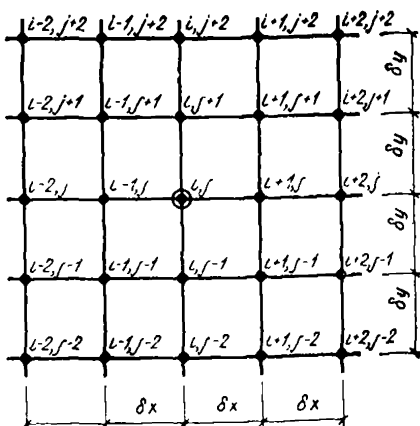 i-2, j+2 i-1, j+2 i, j+2 i+1, j+2 i+2, j+2
δy
i-2, j+1 i-1, j+1 i, j+1 i+1, j+1 i+2, j+1
δy
i-2, j i-1, j i, j i+1, j i+2, j
δy
i-2, j-1 i-1, j-1 i, j-1 i+1, j-1 i+2, j-1
δy
i-2, j-2 i-1, j-2 i, j-2 i+1, j-2 i+2, j-2
δx δx δx